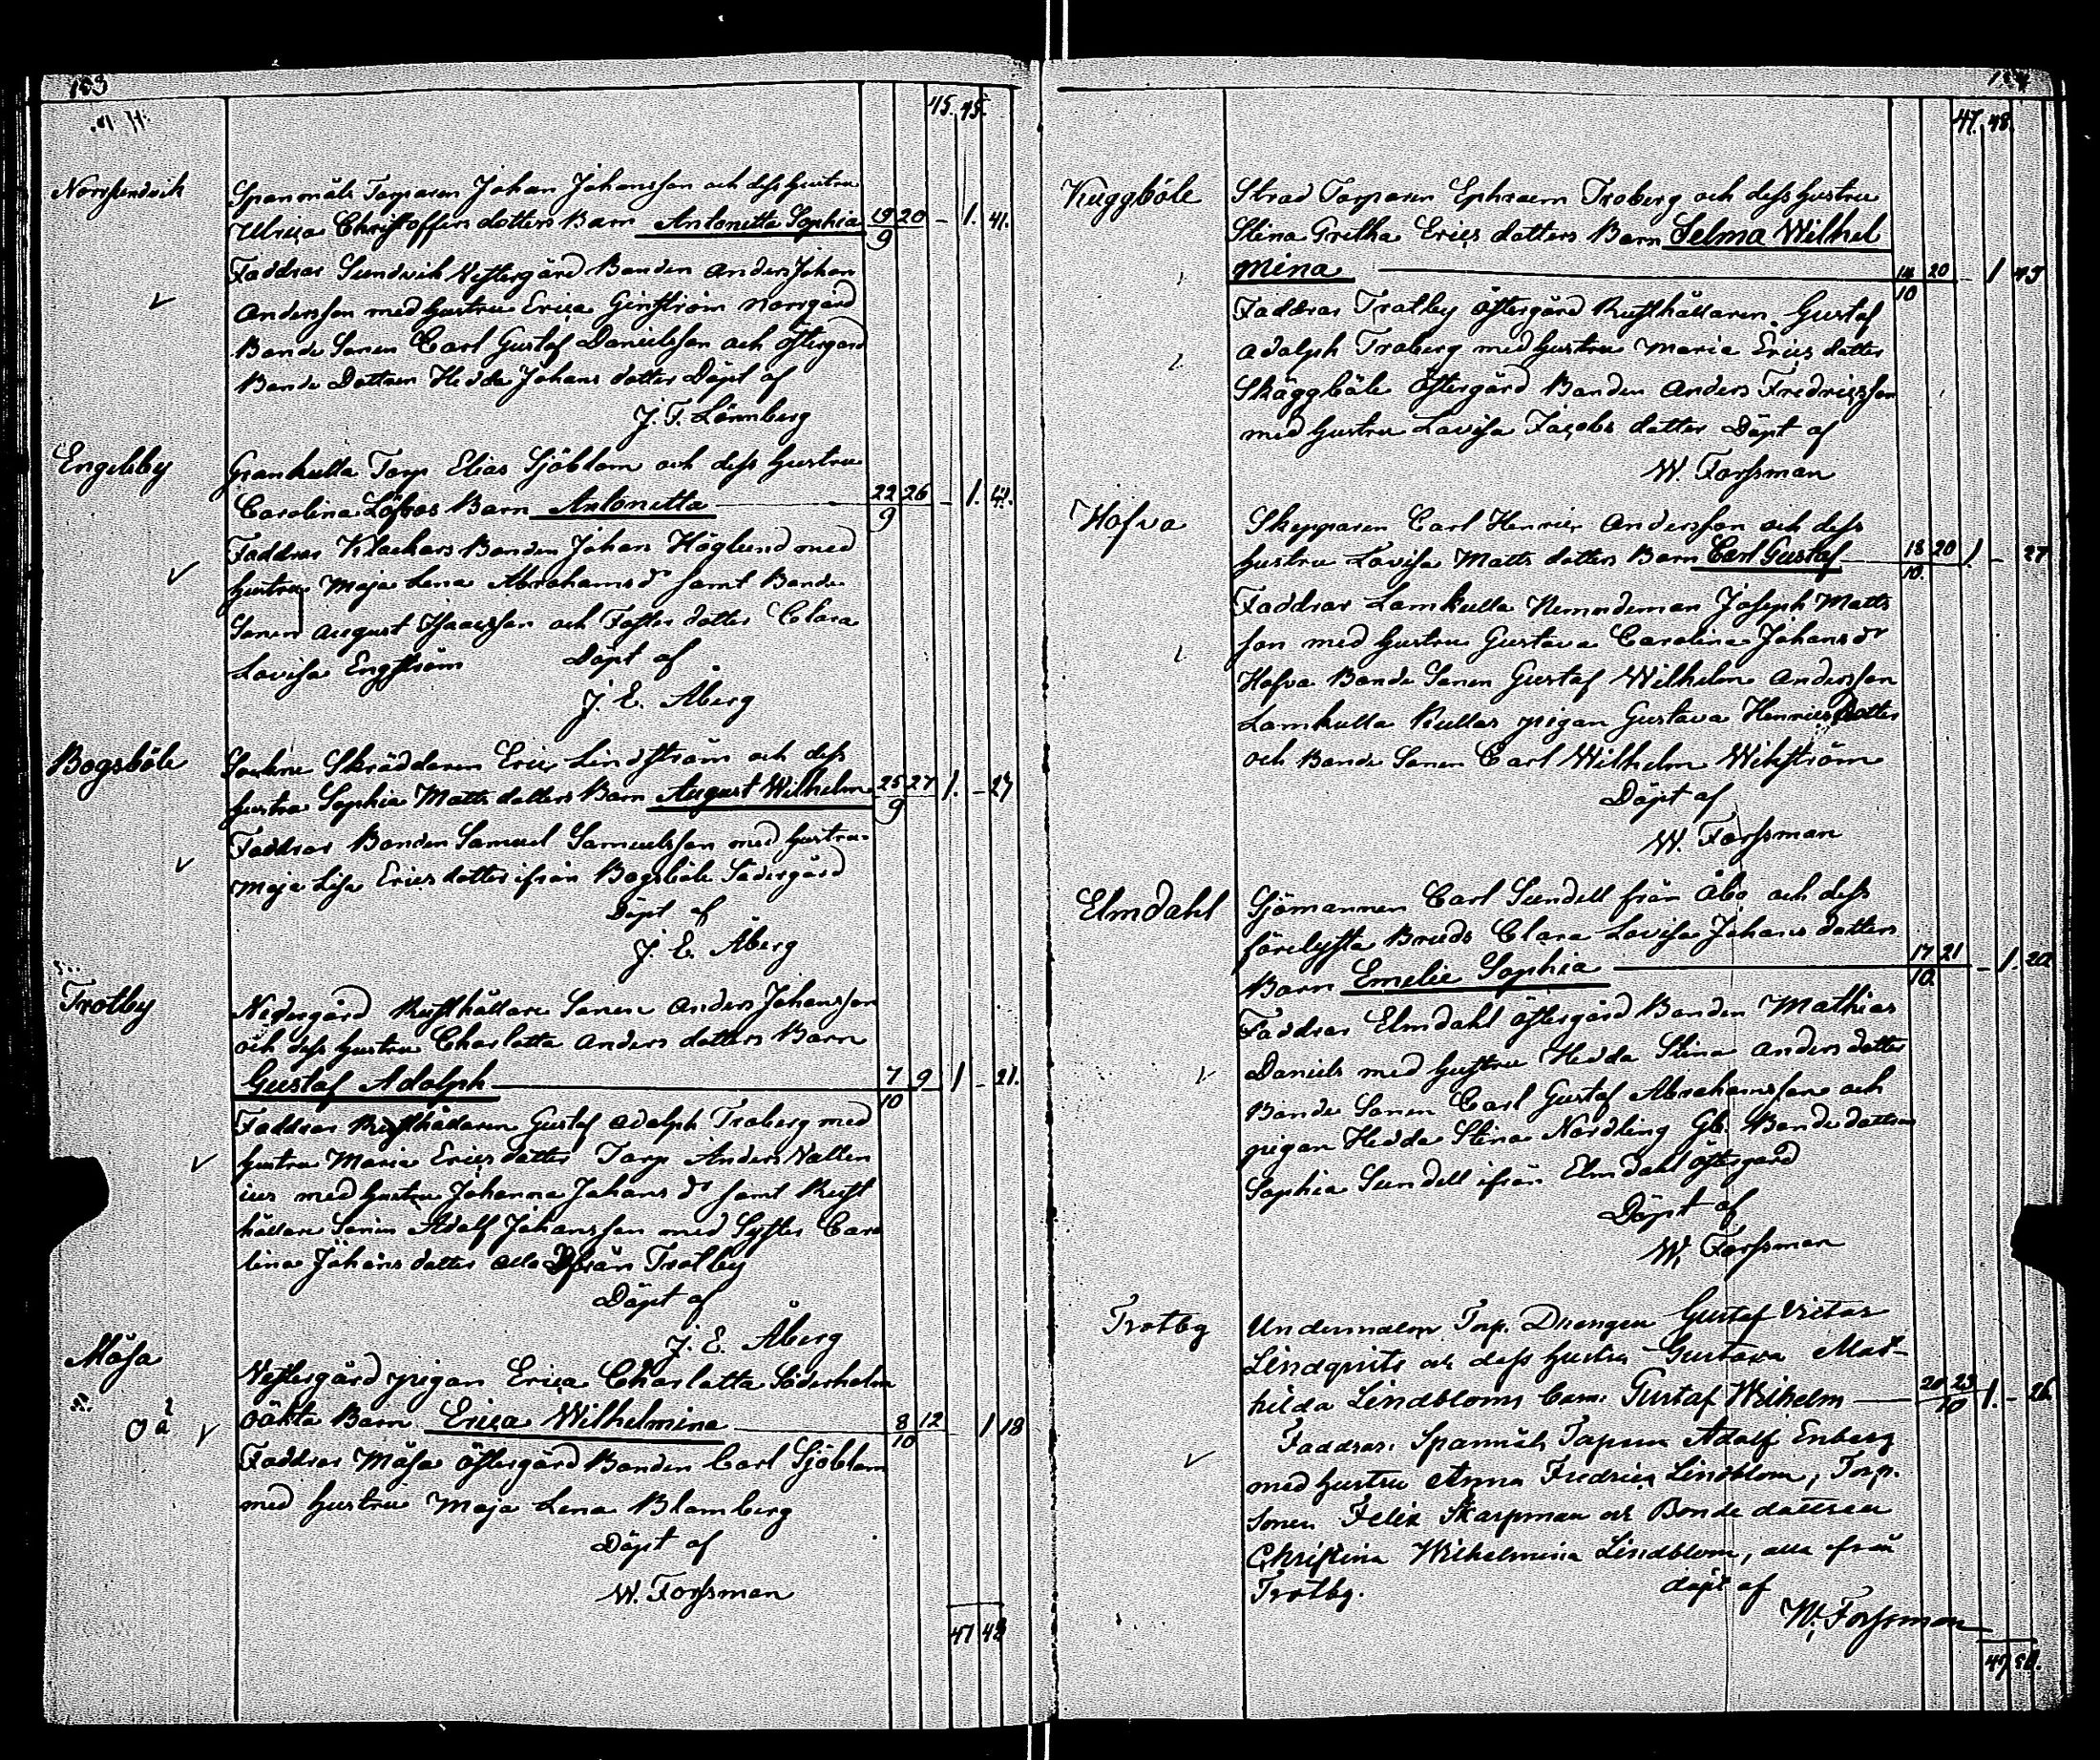 103
45. 45.
Norrsundvik
Spanmäls Torparen Johan Johansson och dess hustru
Ulrica Christoffers dotters Barn Antonetta Sophia 19/9 20 - 1. 41.
Faddrar Sundvik Westergård Bonden Anders Johan
Andersson med hustru Erica Ginström Norrgård
Bonde Sonen Carl Gustaf Danielsson och Östergård
Bonde Dottren Hedda Johans dotter Döpt af
J. F. Lönnberg
Engelsby
Grankulla Torp Elias Sjöblom och dess hustru
Carolina Löfroos Barn Antonetta 22/9 26 - 1. 41.
Faddrar Klackars Bonden Johan Höglund med
hustru Maja Lena Abrahamsdr samt Bonde
Sonen August Isaacsson och Foster dotter Clara
Lovisa Engström Döpt af
J. E. Åberg
Bogsböle
Sockne Skräddaren Eric Lindström och dess
hustru Sophia Matts dotters Barn August Wilhelm 25/9 27 1. - 27
Faddrar Bonden Samuel Samuelsson med hustru
Maja Lisa Erics dotter ifrån Bogsböle Södergård
Döpt af
J. E. Åberg
Trotby
Nedergård Rusthållare Sonen Anders Johansson
och dess hustru Charlotta Anders dotters Barn
Gustaf Adolph 7/10 9 1 - 21.
Faddrar Rusthållaren Gustaf Adolph Troberg med
hustru Maria Erics dotter Torp Anders Wallen
ius med hustru Johanna Johans dr samt Rust
hållare Sonen Adolf Johansson med Syster Caro
lina Johans dotter alla ifrån Trotby
Döpt af
J. E. Åberg
Måsa
Westergård pigan Erica Charlotta Söderholm
oä oäkta Barn Erica Wilhelmina 8/10 12 1 18
Faddrar Måsa Östergård Bonden Carl Sjöblom
med hustru Maja Lena Blomberg
Döpt af
W. Forssman
47 48
104
47. 48.
Kuggböle
Strad Torparen Ephraem Troberg och dess hustru
Stina Gretha Erics dotters Barn Selma Wilhel
mina 14/10 20 - 1 43
Faddrar Trotby Östergård Rusthållaren Gustaf
Adolph Troberg med hustru Maria Erics dotter
Skäggböle Östergård Bonden Anders Fredricsson
med hustru Lovisa Jacobs dotter Döpt af
W. Forssman
Hofva
Skepparen Carl Henric Andersson och dess
hustru Lovisa Matts dotters Barn Carl Gustaf 18/10. 20 1. - 27
Faddrar Lamkulla Nemndeman Joseph Matts
son med hustru Gustava Carolina Johans dr
Hofva Bonde Sonen Gustaf Wilhelm Andersson
Lamkulla Kullas pigan Gustava Henrics Dotter
och Bonde Sonen Carl Wilhelm Wikström
Döpt af
W. Forssman
Elmdahl
Sjömannen Carl Sundell från Åbo och dess
förelysta Bruds Clara Lovisa Johans dotters
Barn Emelie Sophia 17/10. 21 - 1. 22
Faddrar Elmdahl Östergård Bonden Mathias
Daniels med hustru Hedda Stina Anders dotter
Bonde Sonen Carl Gustaf Abrahamsson och
pigan Hedda Stina Nordling Gb. Bonde dottren
Sophia Sundell ifrån Elmdahl Östergård
Döpt af
W. Forssman
Trotby
Torp. Drengen Gustaf Victor
Lindqvists och dess hustru Gustava Mat-
hilda Lindbloms barn: Gustaf Wilhelm 20/10 23 1. - 26
Faddrar: Spanmäls Torparen Adolf Enberg
med hustru Anna Fredrica Lindblom, Torp.
sonen Felix Skarpman och Bonde dottren
Christina Wilhelmina Lindblom, alla från
Trotby. döpt af
W. Forssman
49 50.